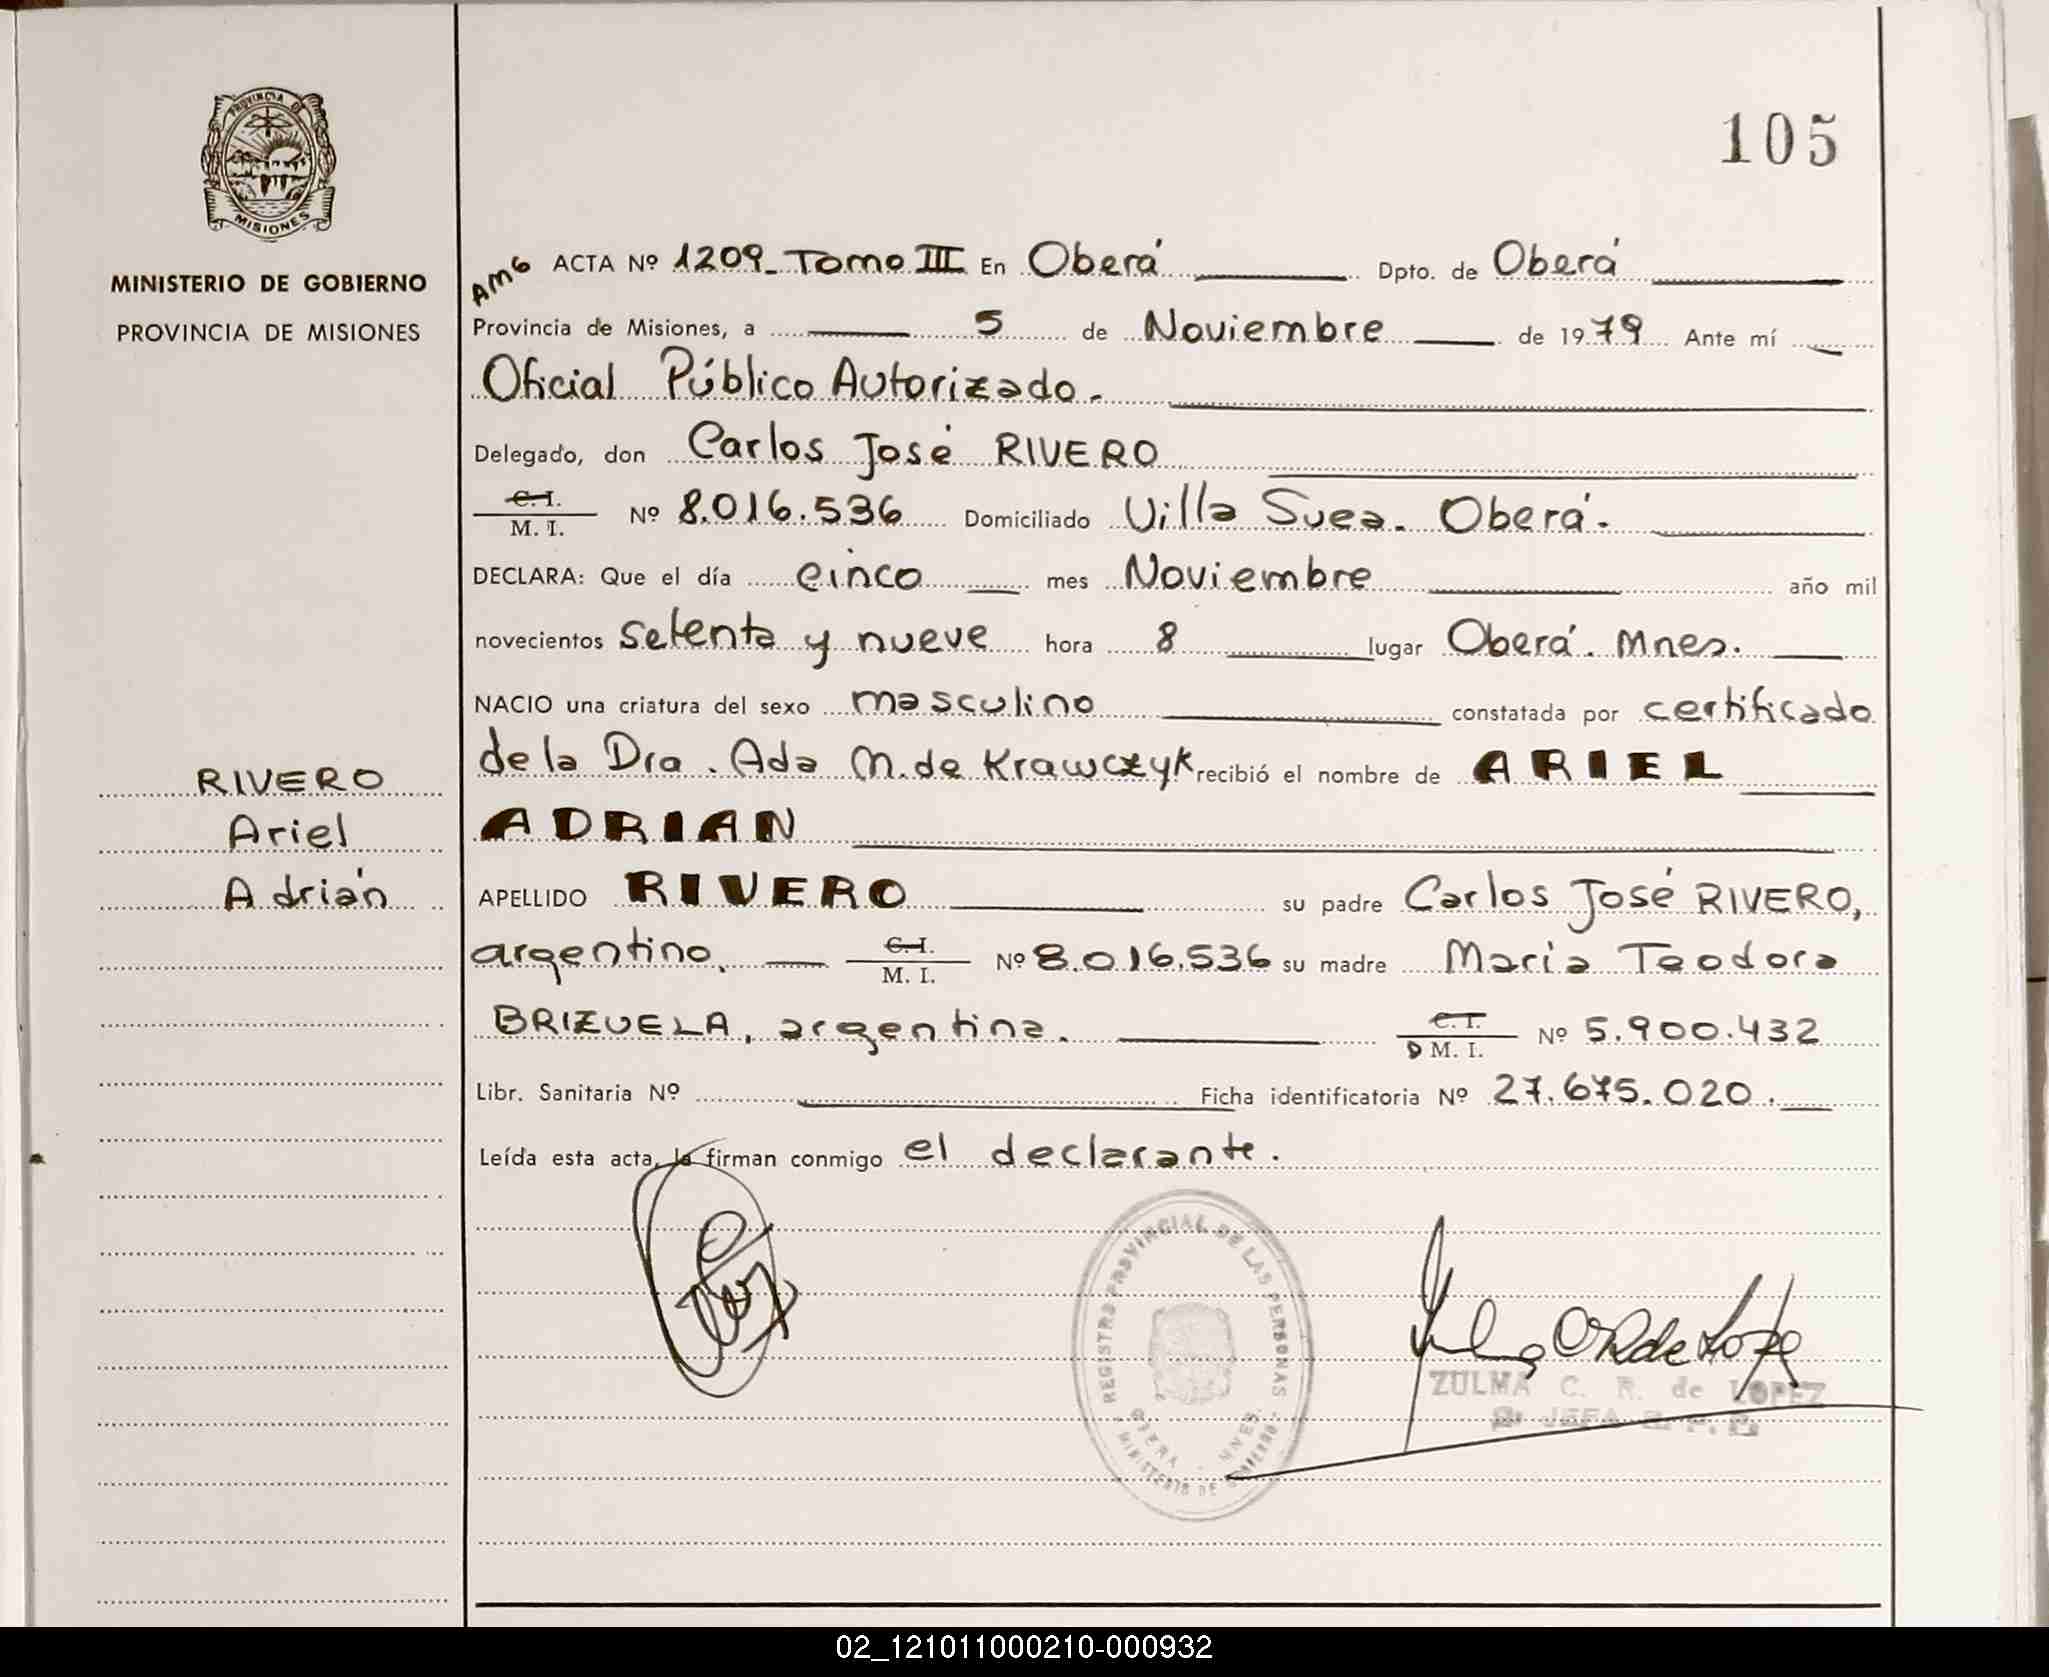 PROVINCIA DE
MISIONES
MINISTERIO DE GOBIERNO
PROVINCIA DE MISIONES
RIVERO
Ariel
Adrián
105
AMG ACTA Nº 1209_Tomo III En Oberá Dpto. de Oberá
Provincia de Misiones, a 5 de Noviembre de 1979 Ante mí
Oficial Público Autorizado.
Delegado, don Carlos José RIVERO
C. I.
M. I. Nº 8.016.536 Domiciliado Villa Svea. Oberá.
DECLARA: Que el día cinco mes Noviembre año mil
novecientos setenta y nueve hora 8 lugar Oberá. Mnes.
NACIO una criatura del sexo masculino constatada por certificado
de la Dra. Ada M. de Krawczyk recibió el nombre de ARIEL
ADRIAN
APELLIDO RIVERO su padre Carlos José RIVERO,
argentino. C. I.
M. I. Nº 8.016.536 su madre Maria Teodora
BRIZUELA, argentina. C. I.
D M. I. Nº 5.900.432
Libr. Sanitaria Nº Ficha identificatoria Nº 27.675.020.
Leída esta acta, la firman conmigo el declarante.
REGISTRO PROVINCIAL DE LAS PERSONAS
OBERA - MNES.
MINISTERIO DE GOBIERNO
ZULMA C. R. de LOPEZ
JEFA
02_121011000210-000932